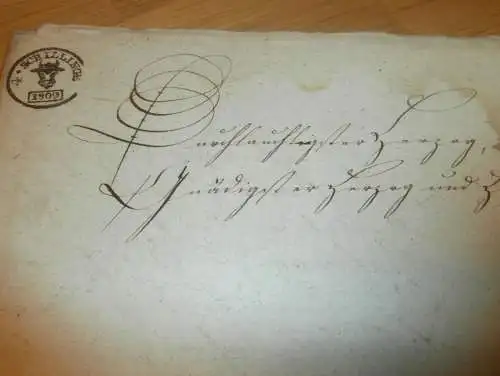 4 • SCHILLING
1809
Durchlauchtigster Herzog,
Gnädigster Herzog und